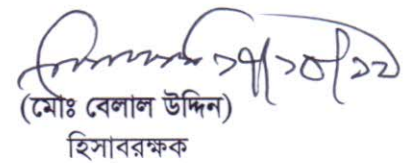 ১৭/১০/১২
(মোঃ বেলাল উদ্দিন)
হিসাবরক্ষক